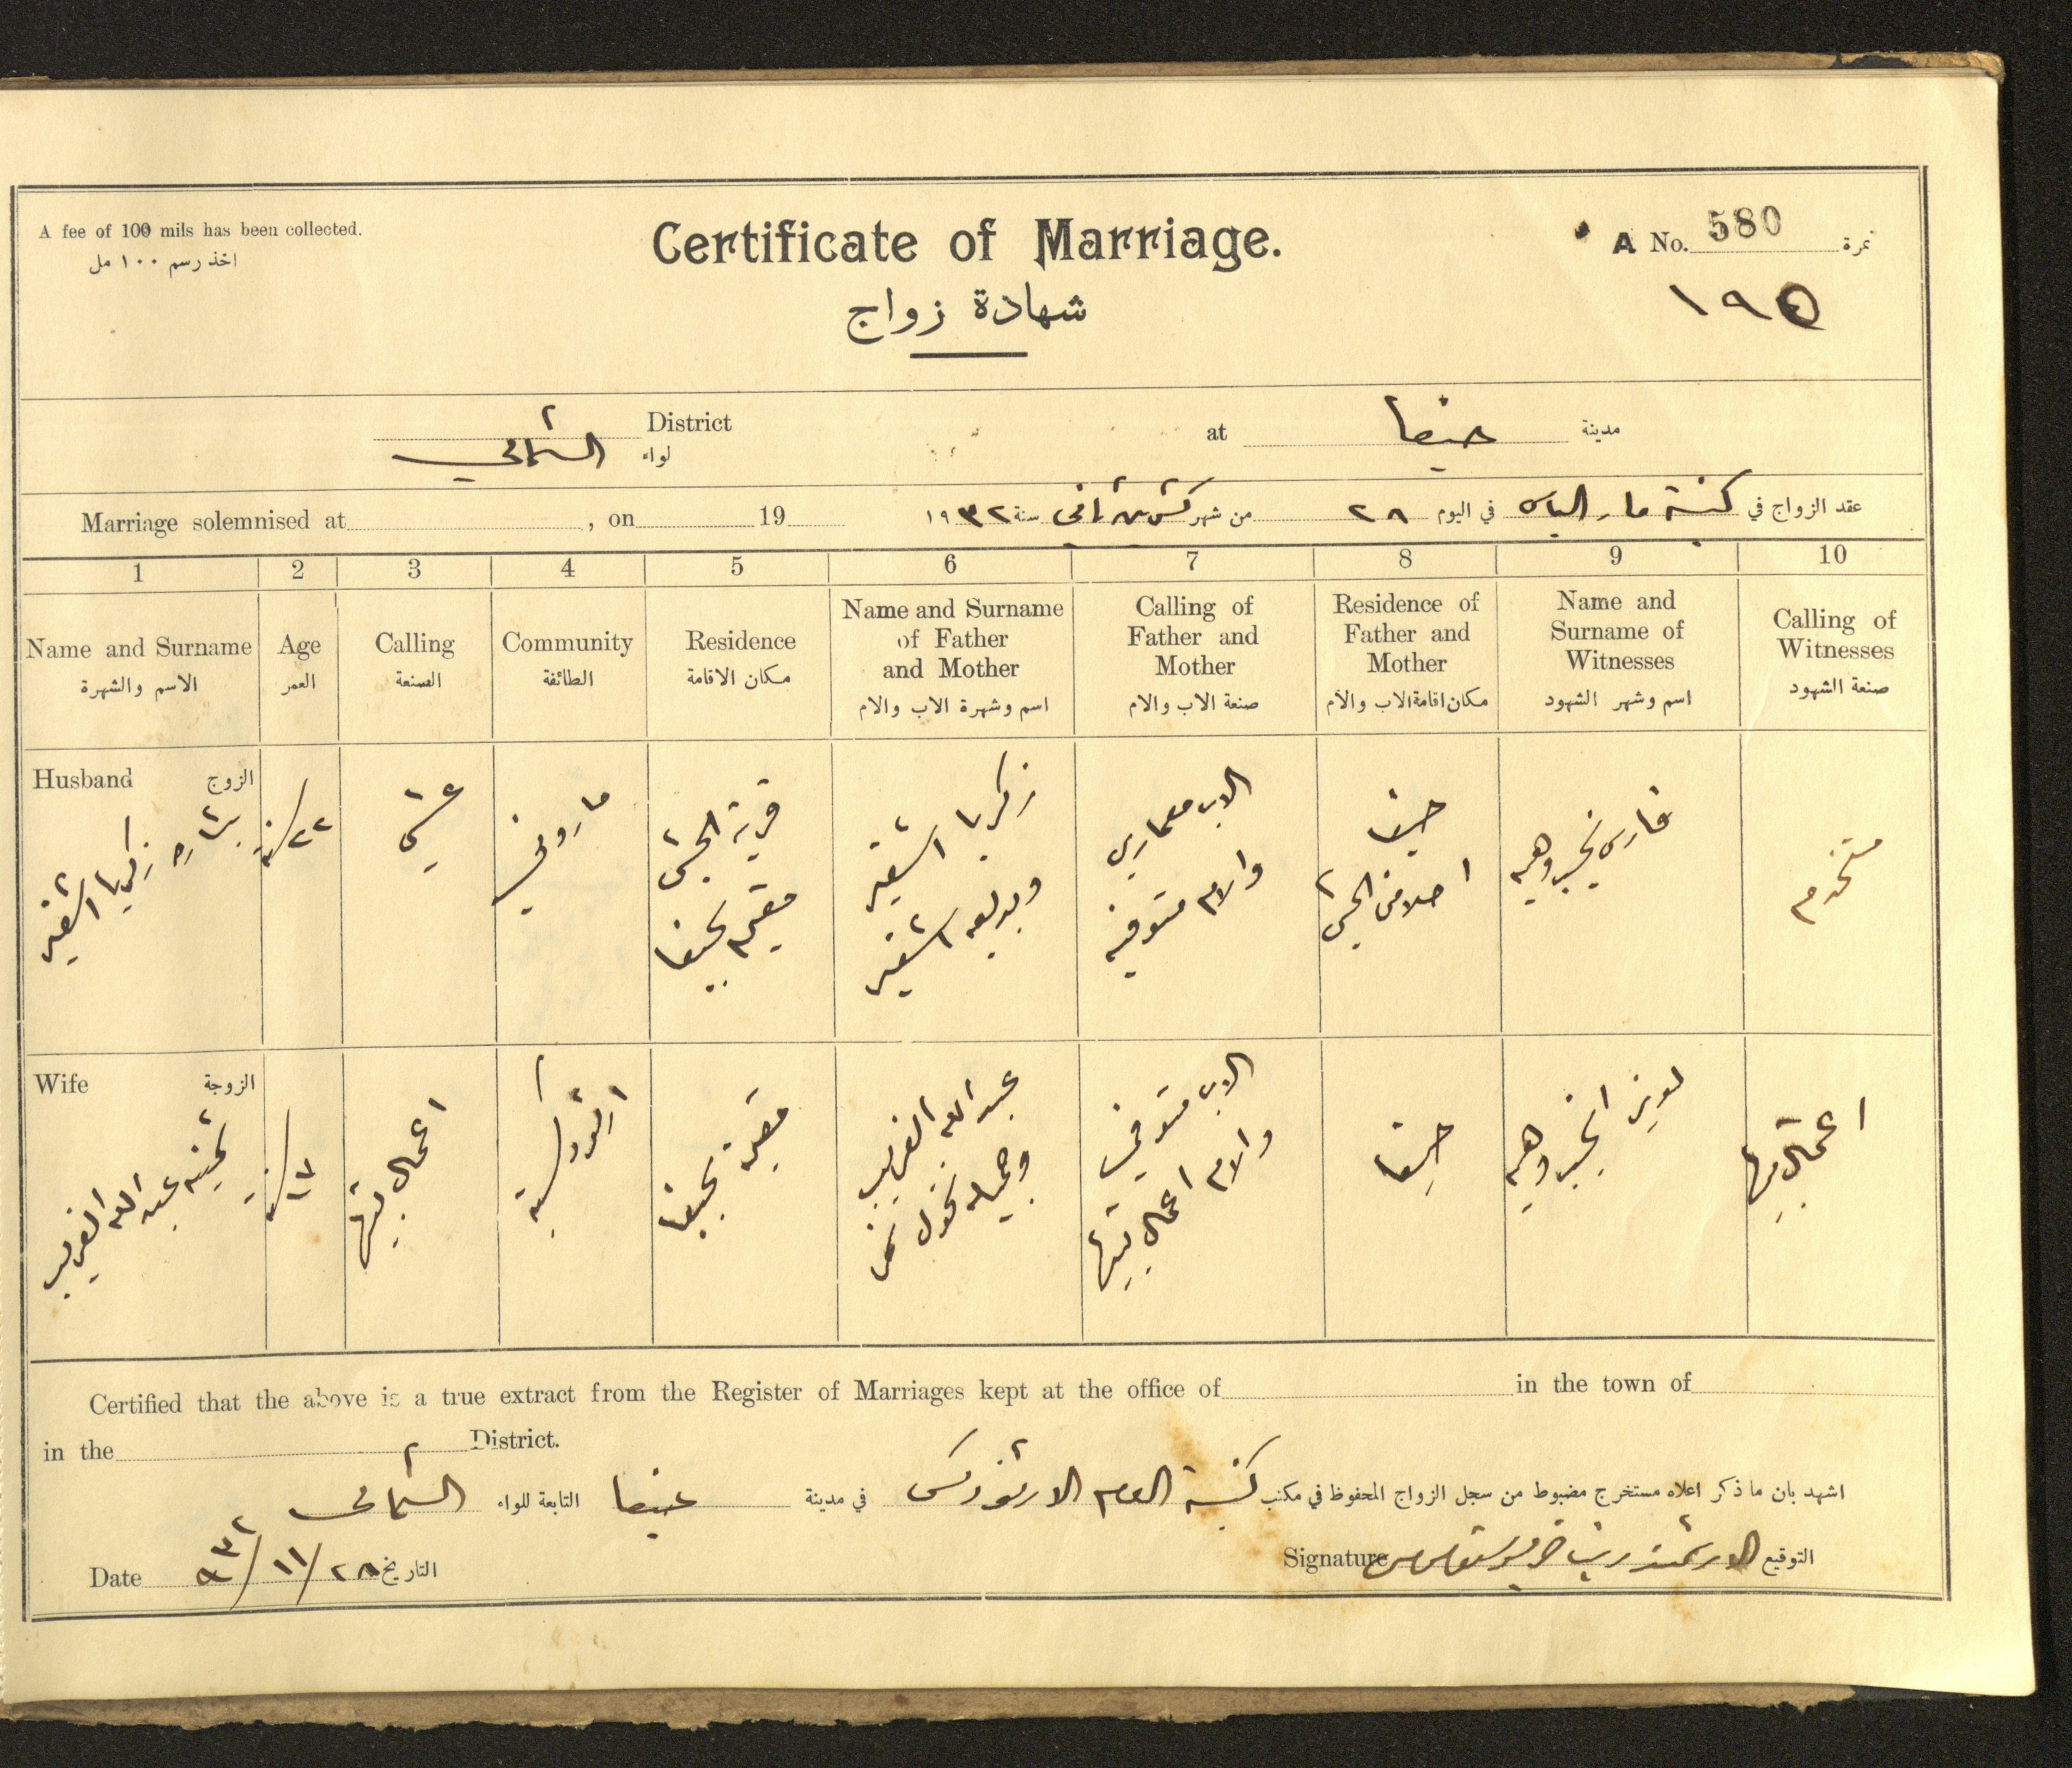 A fee of 100 mils has been collected.
اخذ رسم ١٠٠ مل
Certificate of Marriage.
شهادة زواج
A No. 580 نمرة
١٩٥
District
لواء الشمالي
at حيفا مدينة
Marriage solemnised at , on 19
عقد الزواج في كنيسة مار الياس في اليوم ٢٨ من شهر تشرين ثاني سنة ١٩٣٢
1 2 3 4 5 6 7 8 9 10
Name and Surname
الاسم والشهرة
Age
العمر
Calling
الصنعة
Community
الطائفة
Residence
مكان الاقامة
Name and Surname
of Father
and Mother
اسم وشهرة الاب والام
Calling of
Father and
Mother
صنعة الاب والام
Residence of
Father and
Mother
مكان اقامة الاب والام
Name and
Surname of
Witnesses
اسم وشهر الشهود
Calling of
Witnesses
صنعة الشهود
Husband الزوج
بشاره زكريا اشقير
٢٢ سنة
عشي
ماروني
قرية الجش
مقيم بحيفا
زكريا اشقير
وبديعه اشقير
الاب معماري
والام متوفيه
حيفا
الجش
فارس
مستخدم
Wife الزوجة
عبد الله الغريب
١٧ سنة
اعمال بيتها
ارثوذكسية
مقيمة بحيفا
عبد الله الغريب
وجميله نخول
الاب متوفي
والام اعمال بيتها
حيفا
لويز
اعمال بيتها
Certified that the above is a true extract from the Register of Marriages kept at the office of in the town of
in the District.
اشهد بان ما ذكر اعلاه مستخرج مضبوط من سجل الزواج المحفوظ في مكتب كنيسة الروم الارثوذكس في مدينة حيفا التابعة للواء الشمالي
التوقيع الارشمندريت Signature
Date ٢٨/١١/٩٣٢ التاريخ